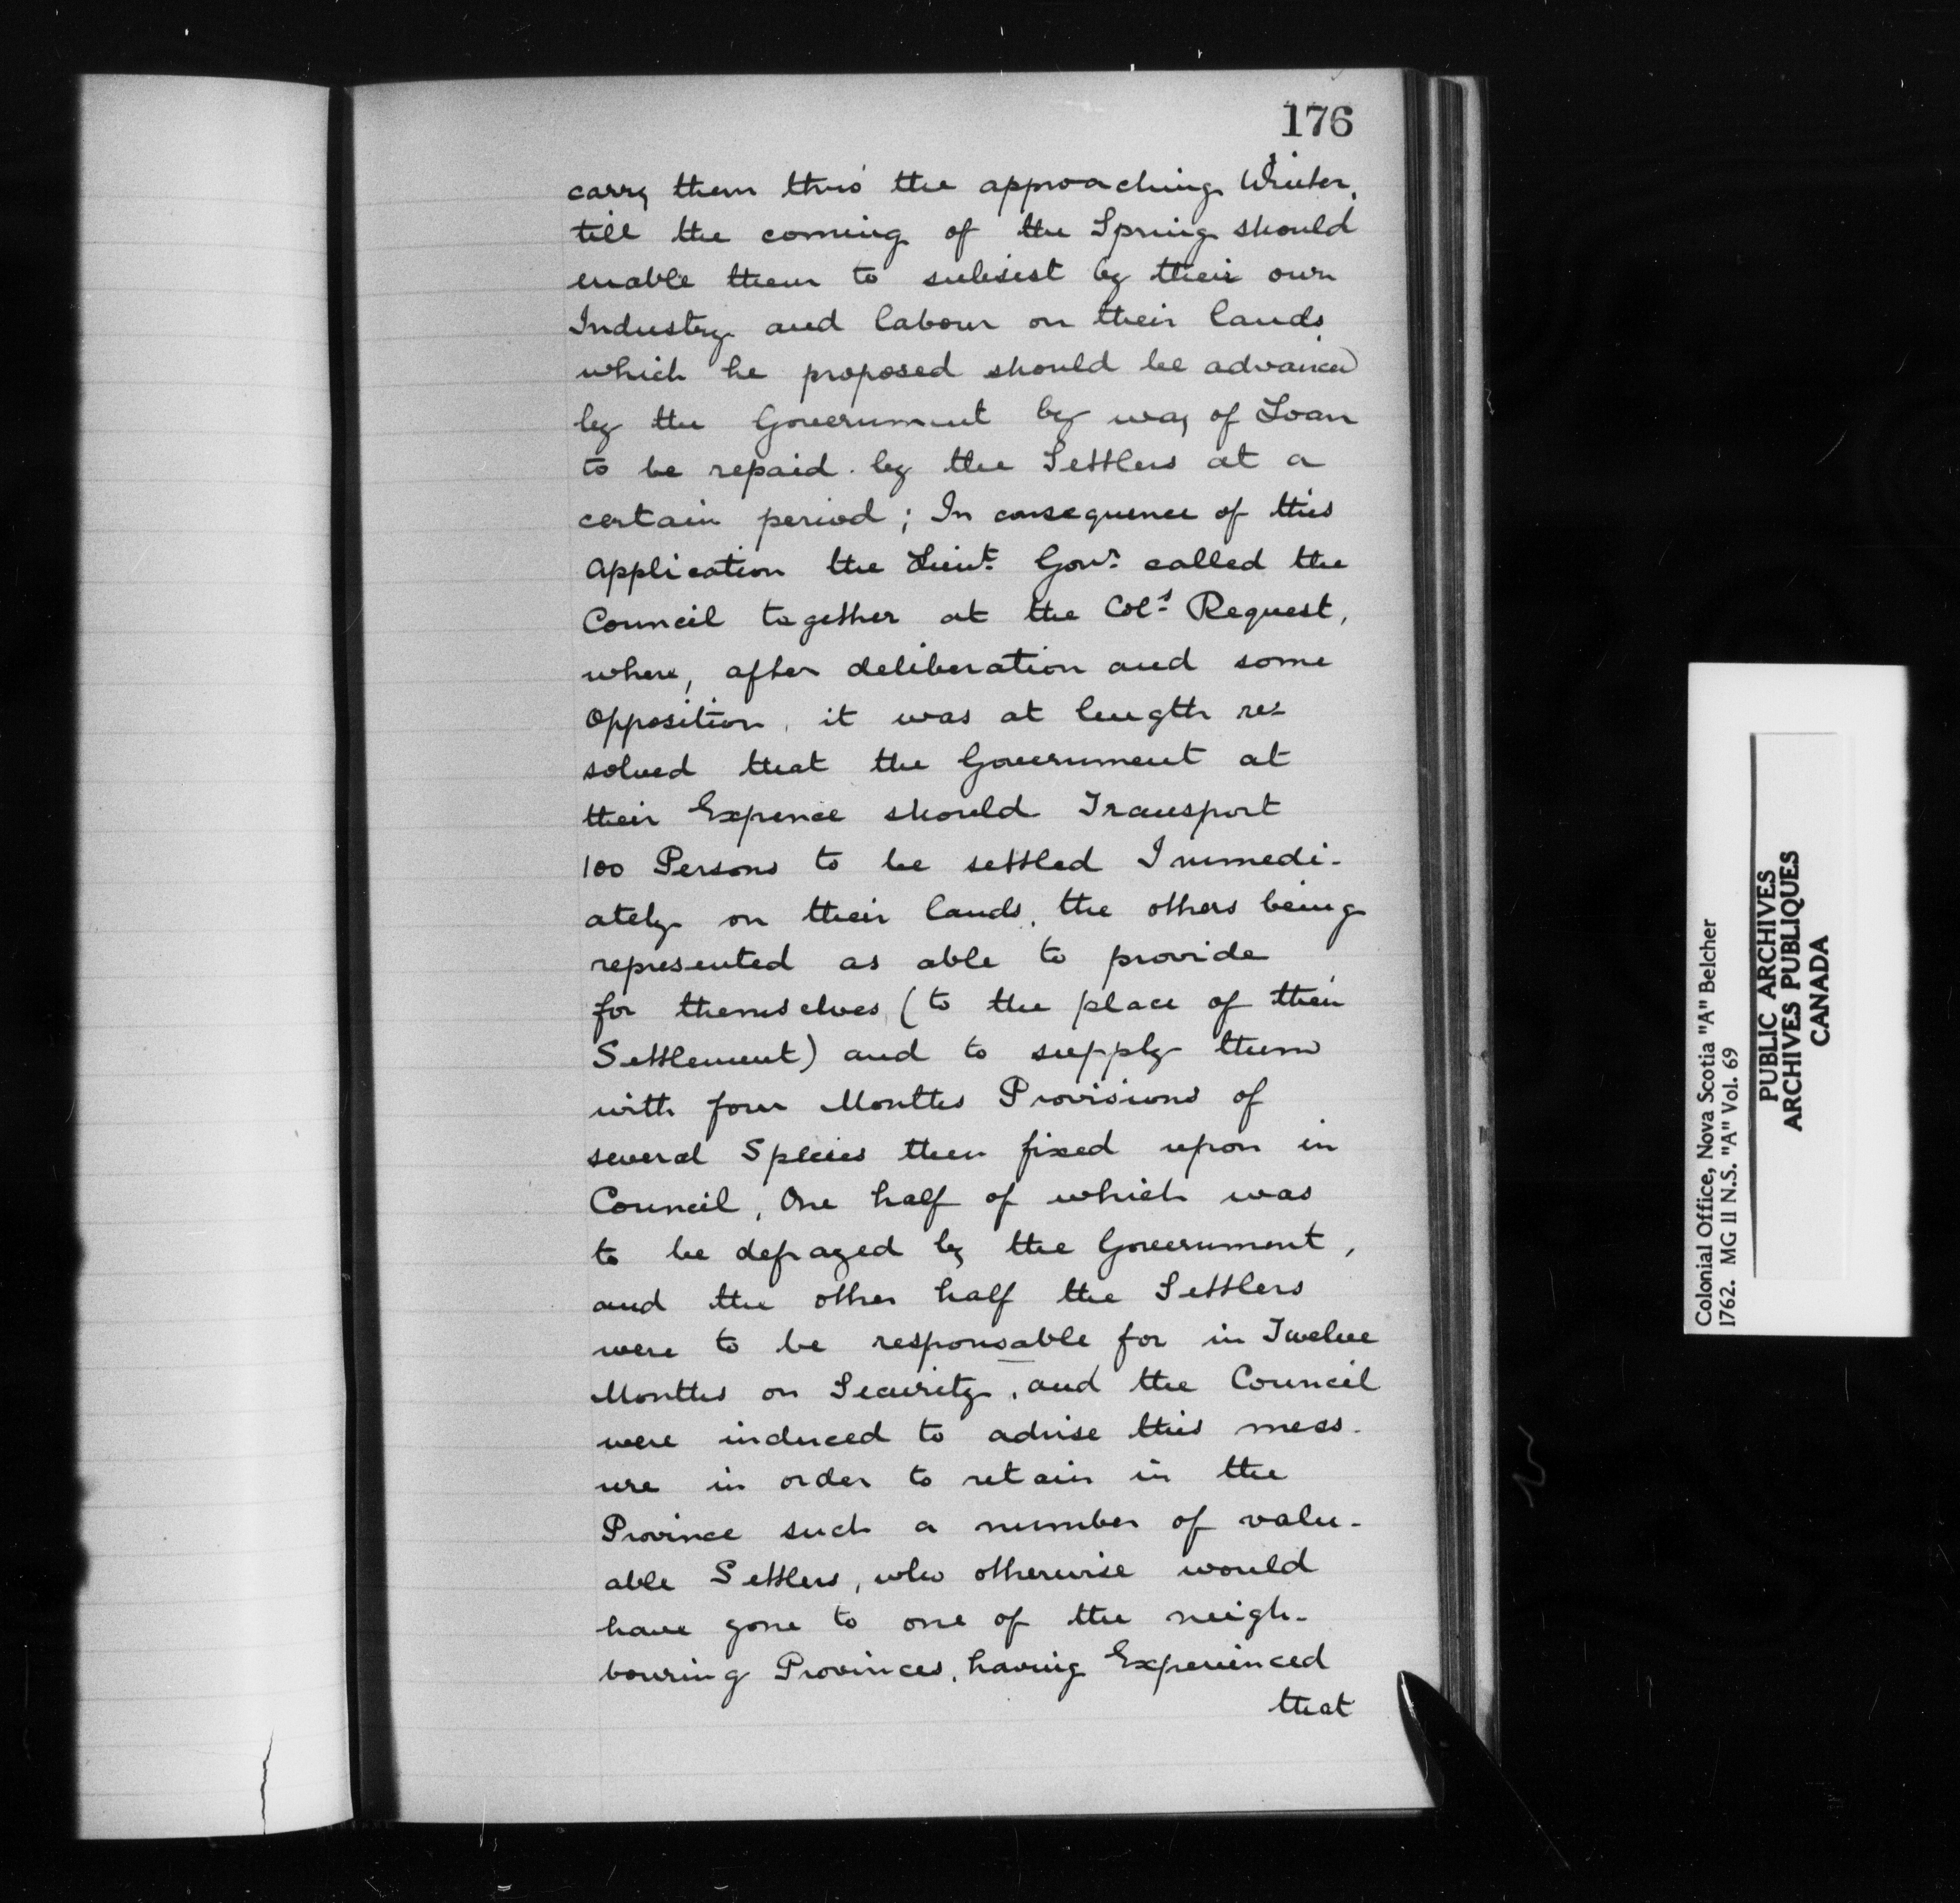 176
carry them thro' the approaching Winter,
till the coming of the Spring should
enable them to subsist by their own
Industry and labour on their lands
which he proposed should be advanced
by the Government by way of Loan
to be repaid by the Settlers at a
certain period; In consequence of this
Application the Lieut. Govr. called the
Council together at the Cols. Request,
where, after deliberation and some
Opposition, it was at length re-
solved that the Government at
their Expence should Transport
100 Persons to be settled Immedi-
ately on their lands, the others being
represented as able to provide
for themselves (to the place of their
Settlement) and to supply them
with four Months Provisions of
several Species then fixed upon in
Council, One half of which was
to be defrayed by the Government,
and the other half the Settlers
were to be responsable for in Twelve
Months on Security, and the Council
were induced to advise this meas-
ure in order to retain in the
Province such a number of valu-
able Settlers, who otherwise would
have gone to one of the neigh-
bouring Provinces, having Experienced
that
Colonial Office, Nova Scotia "A" Belcher
1762. MG 11 N.S. "A" Vol. 69
PUBLIC ARCHIVES
ARCHIVES PUBLIQUES
CANADA